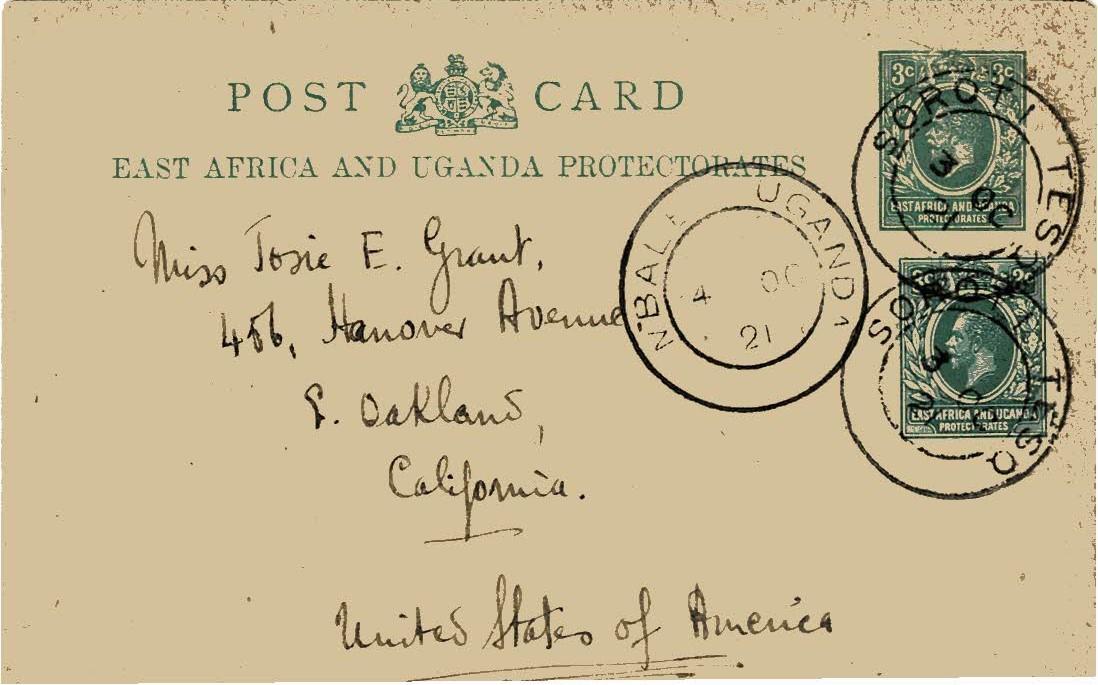 POST CARD
EAST AFRICA AND UGANDA PROTECTORATES
3c 3c
EAST AFRICA AND UGANDA
PROTECTORATES
SOROTI TESO
3 OC
EAST AFRICA AND UGANDA
PROTECTORATES
SOROTI TESO
3
UGANDA
MBALE
4 OC
21
Miss Josie E. Grant,
Hanover Avenue
E. Oakland,
California.
United States of America